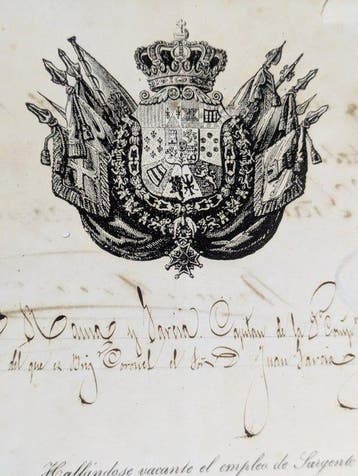 y García Capitan de la
del que es Brig.r Coronel el Sor D. Juan García
Hallándose vacante el empleo de Sargento